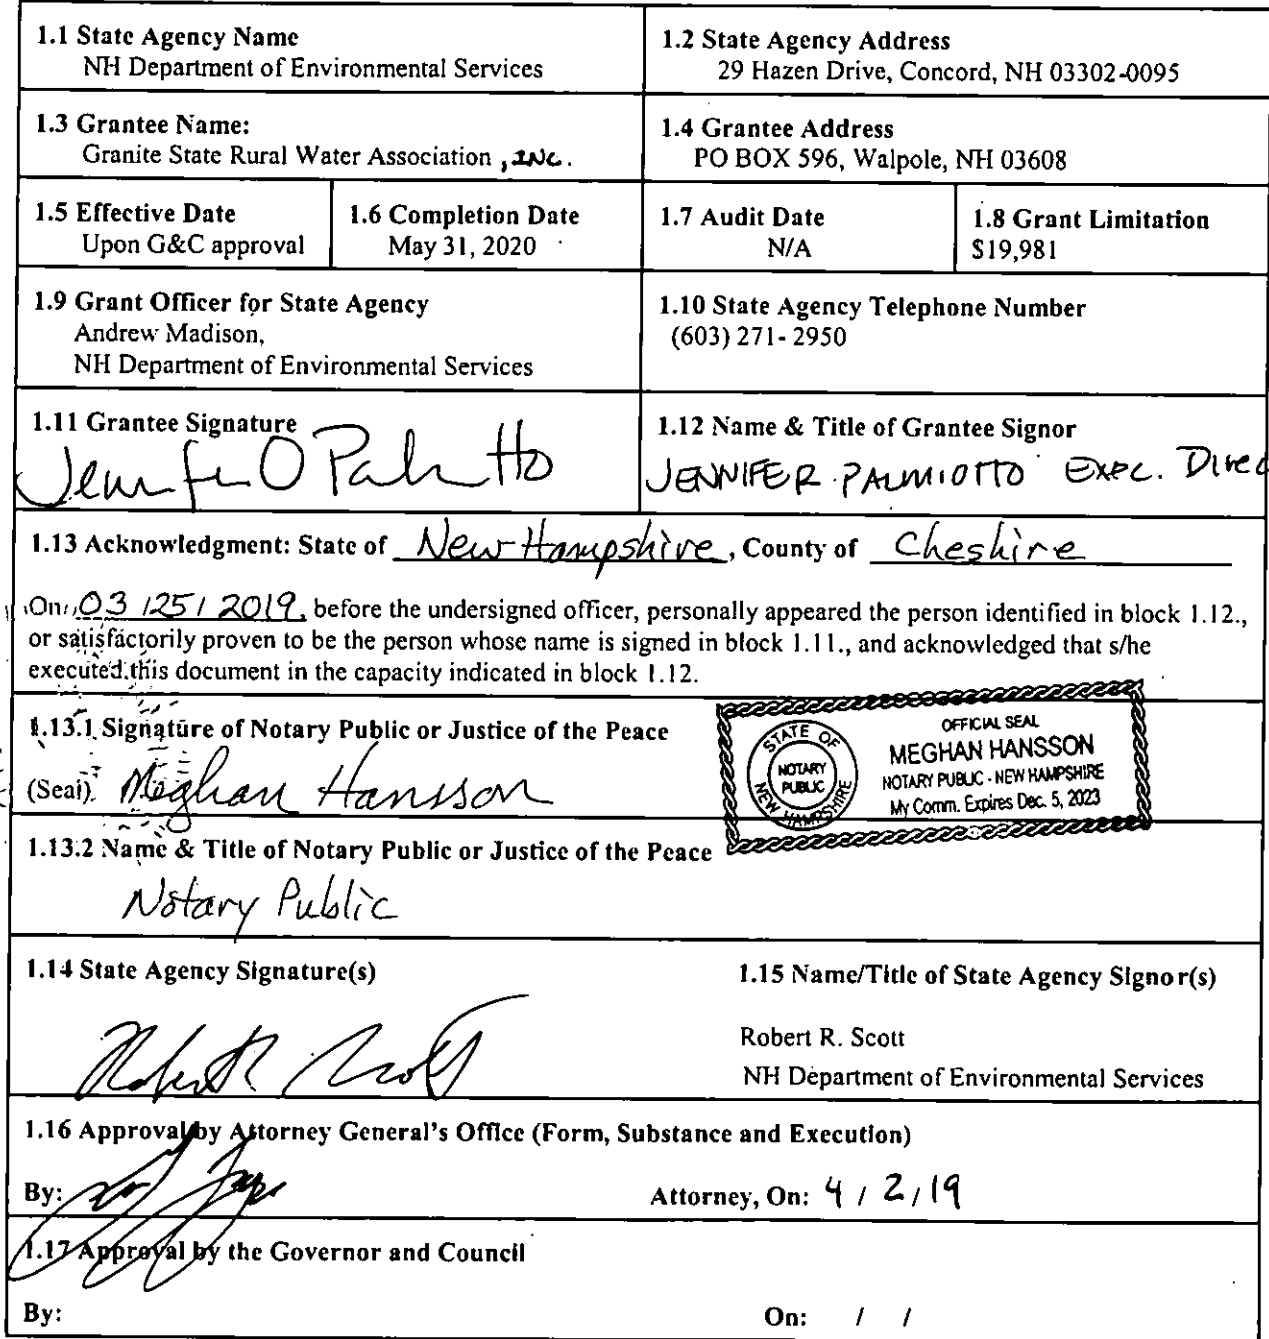 1.1 State Agency Name
NH Department of Environmental Services
1.2 State Agency Address
29 Hazen Drive, Concord, NH 03302-0095
1.3 Grantee Name:
Granite State Rural Water Association, INC.
1.4 Grantee Address
PO BOX 596, Walpole, NH 03608
1.5 Effective Date
Upon G&C approval
1.6 Completion Date
May 31, 2020
1.7 Audit Date
N/A
1.8 Grant Limitation
$19,981
1.9 Grant Officer for State Agency
Andrew Madison,
NH Department of Environmental Services
1.10 State Agency Telephone Number
(603) 271- 2950
1.11 Grantee Signature
1.12 Name & Title of Grantee Signor
JENNIFER PALMIOTTO EXEC. Direc
1.13 Acknowledgment: State of New Hampshire, County of Cheshire
On 03 /25/ 2019, before the undersigned officer, personally appeared the person identified in block 1.12.,
or satisfactorily proven to be the person whose name is signed in block 1.11., and acknowledged that s/he
executed this document in the capacity indicated in block 1.12.
1.13.1 Signature of Notary Public or Justice of the Peace
(Seal) Meghan Hansson
STATE OF
NOTARY
PUBLIC
NEW HAMPSHIRE
OFFICIAL SEAL
MEGHAN HANSSON
NOTARY PUBLIC - NEW HAMPSHIRE
My Comm. Expires Dec. 5, 2023
1.13.2 Name & Title of Notary Public or Justice of the Peace
Notary Public
1.14 State Agency Signature(s)
1.15 Name/Title of State Agency Signor(s)
Robert R. Scott
NH Department of Environmental Services
1.16 Approval by Attorney General's Office (Form, Substance and Execution)
By:
Attorney, On: 4 / 2 / 19
1.17 Approval by the Governor and Council
By:
On: / /